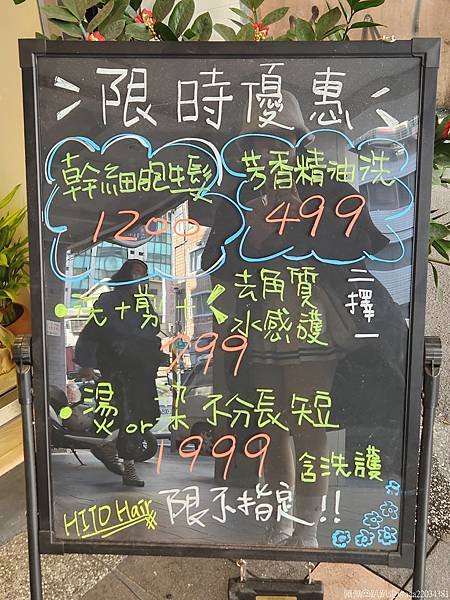 限時優惠
幹細胞生髮
1200
芳香精油洗
499
• 洗+剪+ 去角質 二擇一
水感護
999
• 燙 or 染 不分長短
1999 含洗護
HITO Hair 限不指定!!